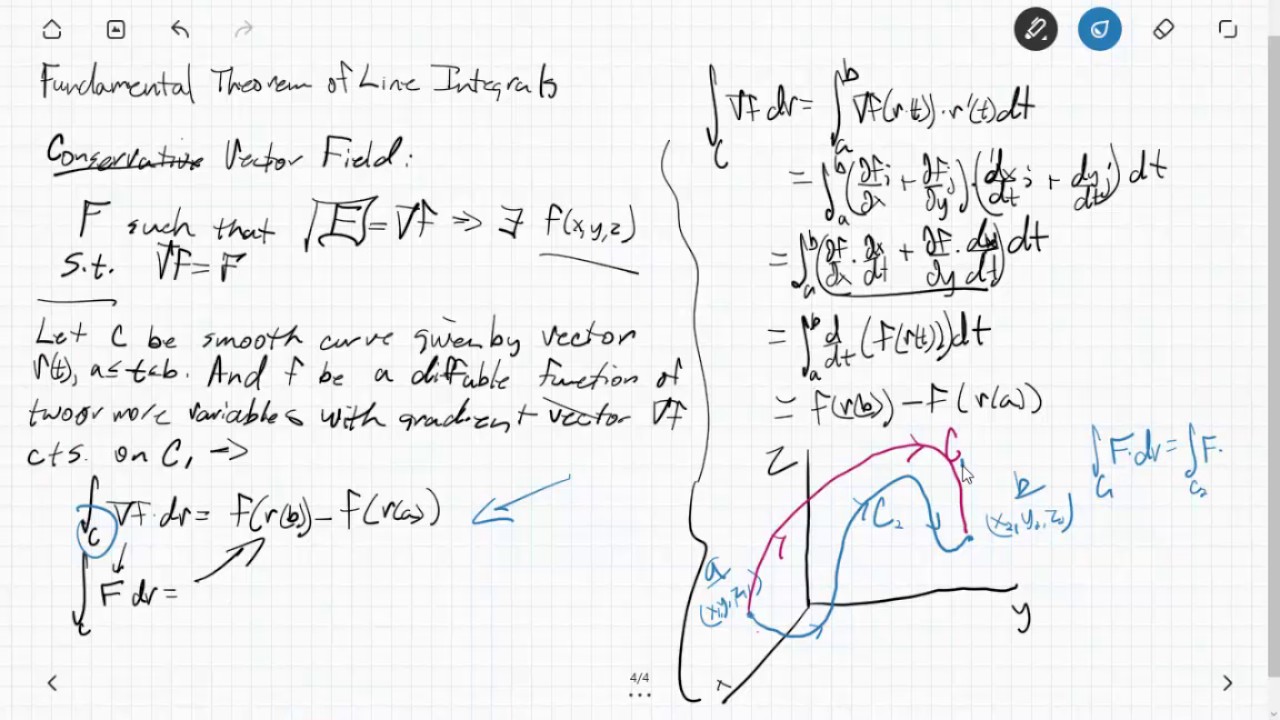 Fundamental Theorem of Line Integrals
Conservative Vector Field:
F such that F = ∇f => ∃ f(x,y,z)
s.t. ∇f = F
Let C be smooth curve given by vector
r(t), a≤t≤b. And f be a diffable function of
two or more variables with gradient vector ∇f
cts. on C, →
∫_C ∇f · dr = f(r(b)) - f(r(a))
∫_C F dr =
∫_C ∇f dr = ∫_a^b ∇f(r(t)) · r'(t) dt
= ∫_a^b (∂f/∂x i + ∂f/∂y j) · (dx/dt i + dy/dt j) dt
= ∫_a^b (∂f/∂x · ∂x/dt + ∂f/∂y · dy/dt) dt
= ∫_a^b d/dt (f(r(t))) dt
= f(r(b)) - f(r(a))
z
C
∫_C₁ F · dr = ∫_C₂ F ·
C₂
b
(x₂, y₂, z₂)
a
y
x
4/4